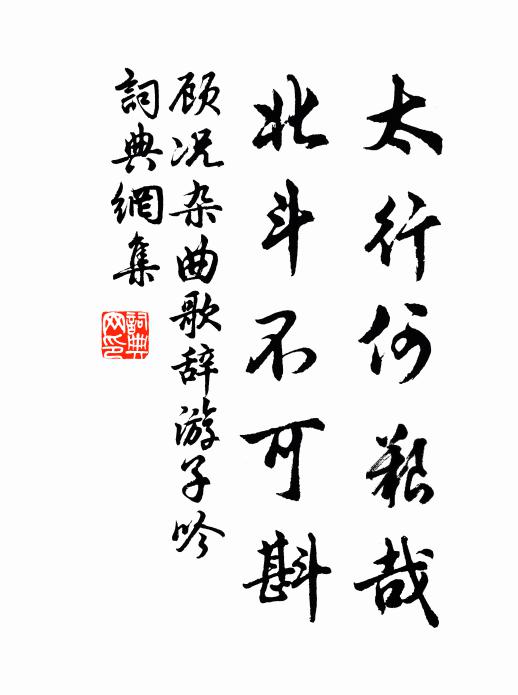 太行何艱哉
北斗不可斟
顾况杂曲歌辞游子吟
詞典網集
詞典
网印